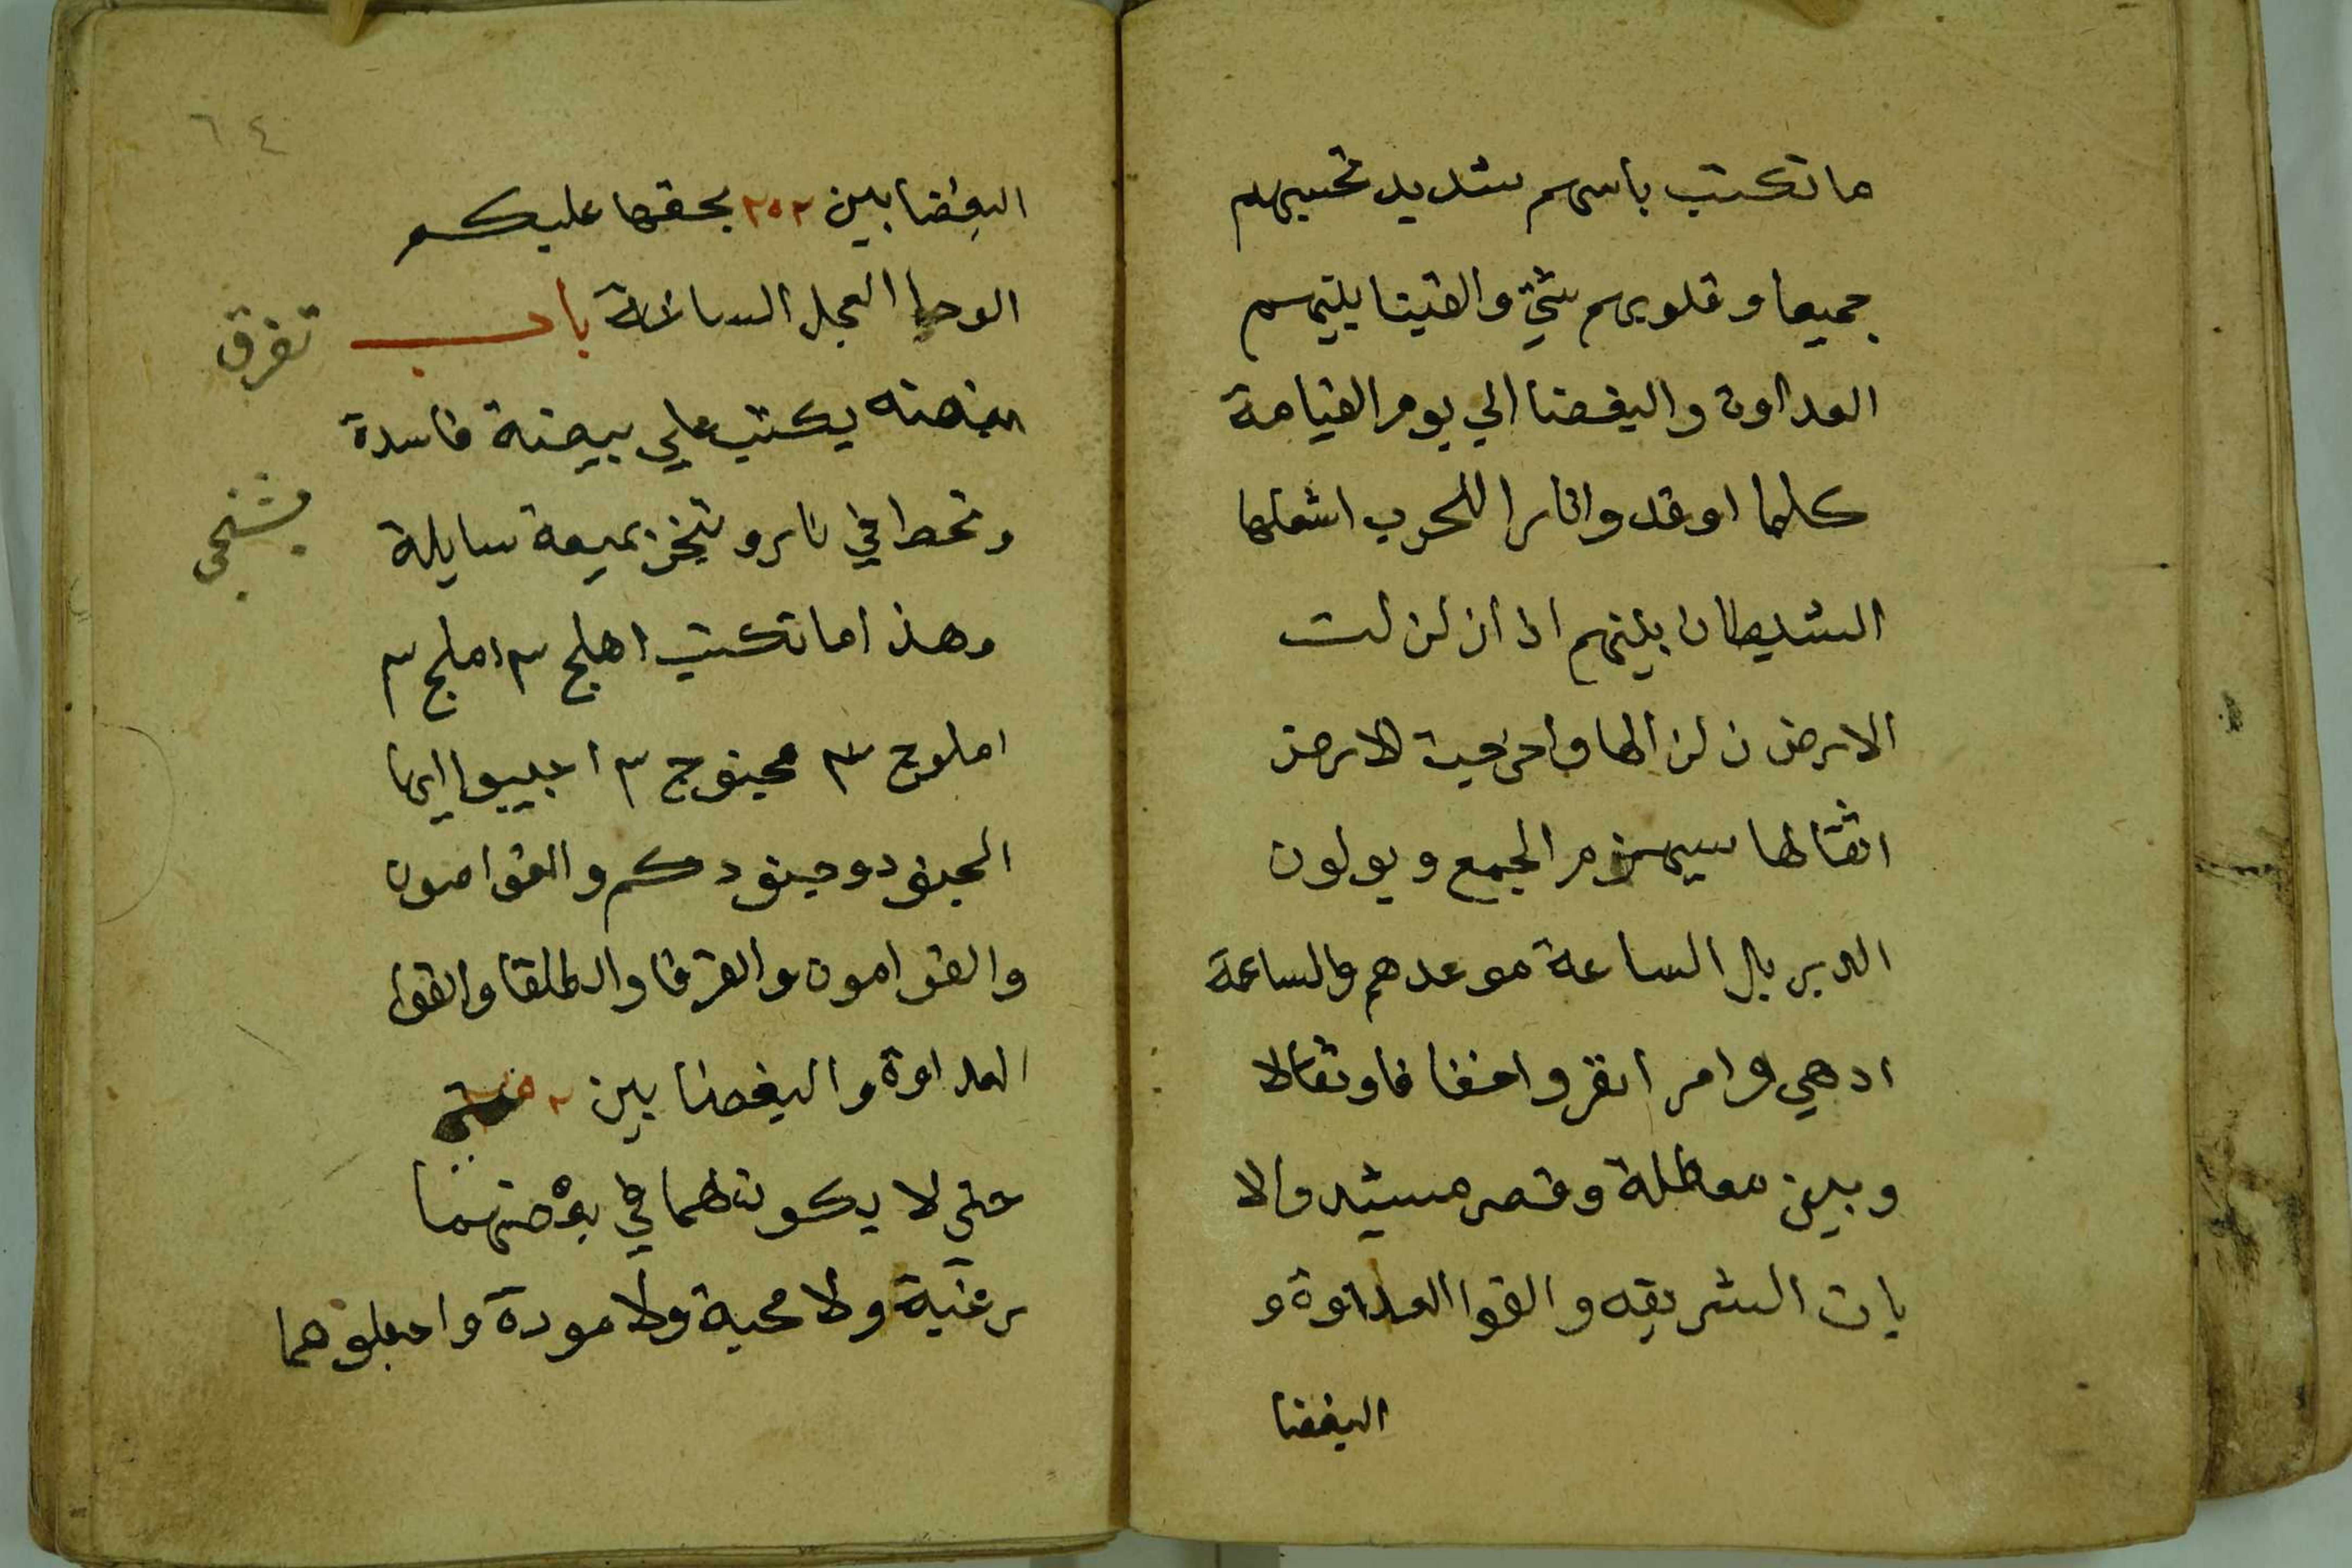 ما تكتب باسهم شديد تحسبهم
جميعا وقلوبهم شتي والقينا بينهم
العداوة والبغضا الي يوم القيامة
كلما اوقدوا نارا للحرب اشعلها
الشيطان بينهم اذا زلزلت
الارض زلزالها واخرجت الارض
اثقالها سيهزم الجمع ويولون
الدبر بل الساعة موعدهم والساعة
ادهي وامر انفروا خفافا وثقالا
وبير معطلة وقصر مشيد والا
يات الشريفه والقوا العداوة و
البغضا
٦٤
البغضا بين ٢٥٢ بحقها عليكم
الوحا العجل الساعة باب
تفرق
بغضه يكتب علي بيضة فاسدة
وتحط في نار وتبخر بميعة سايلة
وهذا ما تكتب اهلج ٣ املج ٣
املوج ٣ محينوج ٣ اجيبوا ايها
الجنود وجنودكم والقوامون
والقوامون والفرقا والطلقا والقوا
العداوة والبغضا بين
حتي لا يكون لهما في بعضهما
رغبة ولا محبة ولا مودة واجعلوهما